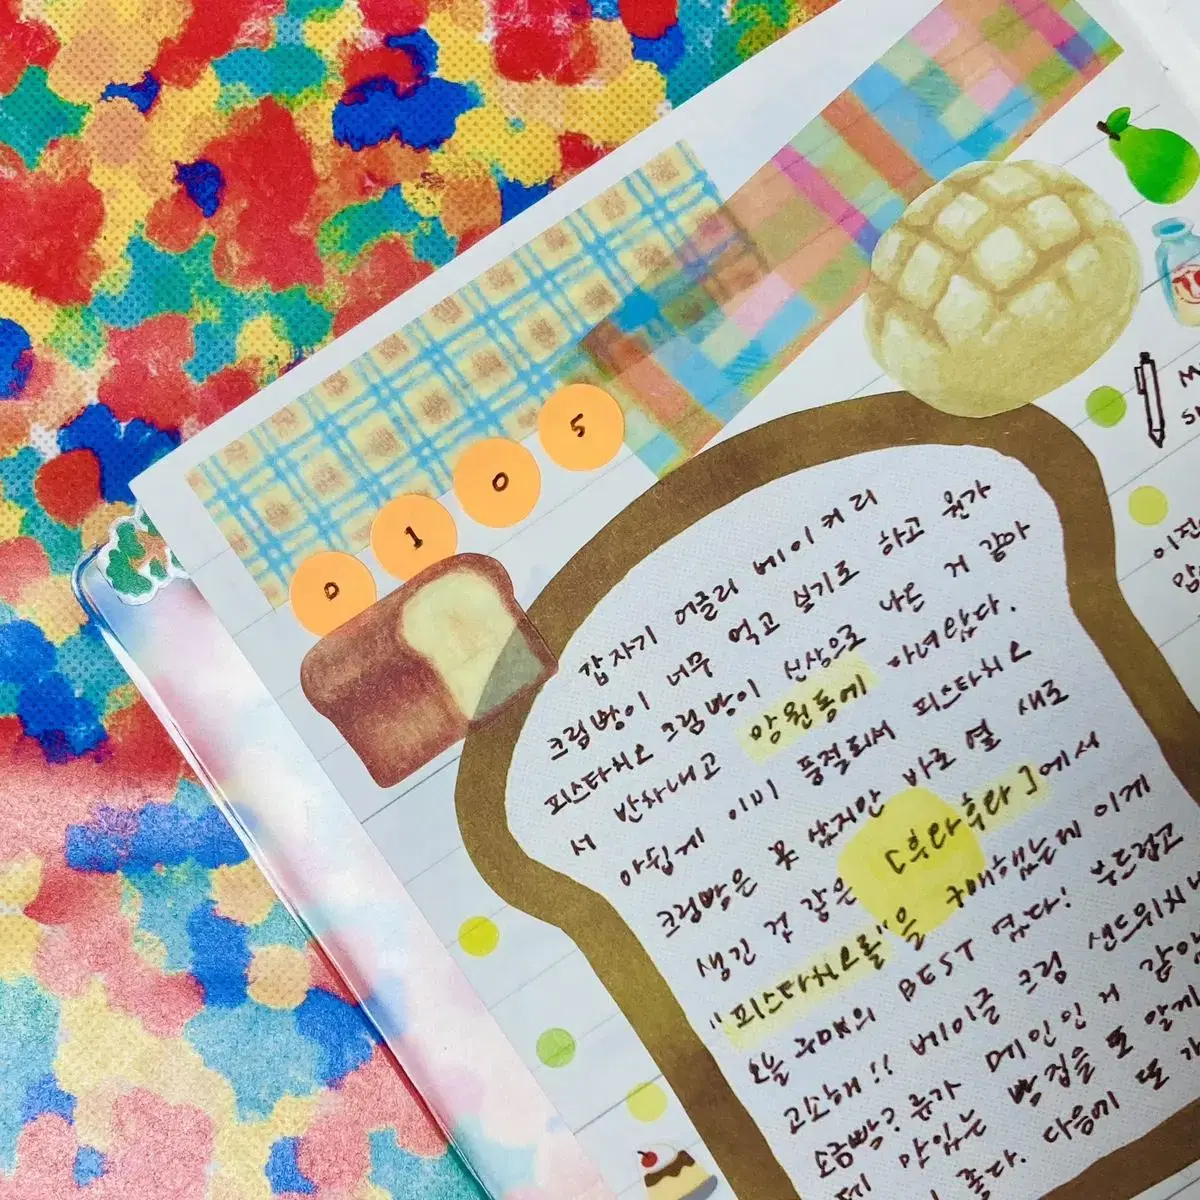 0 1 0 5
갑자기 어글리 베이커리
크림빵이 너무 먹고 싶기도 하고 뭔가
피스타치오 크림빵이 신상으로 나온 거 같아
서 반차내고 망원동에 다녀왔다.
아쉽게 이미 품절되서 피스타치오
크림빵은 못 샀지만 바로 옆 새로
생긴 것 같은 [후라후라]에서
"피스타치오롤"을 구매했는데 이게
오늘 구매의 BEST 였다! 부드럽고
고소해!! 베이글 크림 샌드위치나
소금빵?류가 메인인 거 같았
데 맛있는 빵집을 또 알게
좋다. 다음에 또 가
M
s
이전